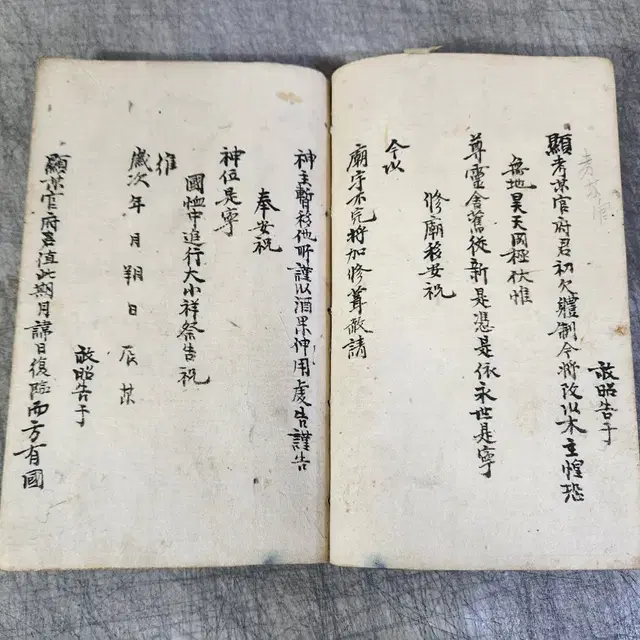 敢昭告于
顯考某官府君初欠體制今將改以木主惶恐
無地昊天罔極伏惟
尊靈舍舊從新是憑是依永世是寧
修廟移安祝
今以
廟宇不完將加修葺敢請
神主暫移他所謹以酒果伸用虔告謹告
奉安祝
神位是寧
國恤中追行大小祥祭告祝
維
歲次年月朔日辰某
敢昭告于
顯某官府君值此期月諱日復臨而方有國